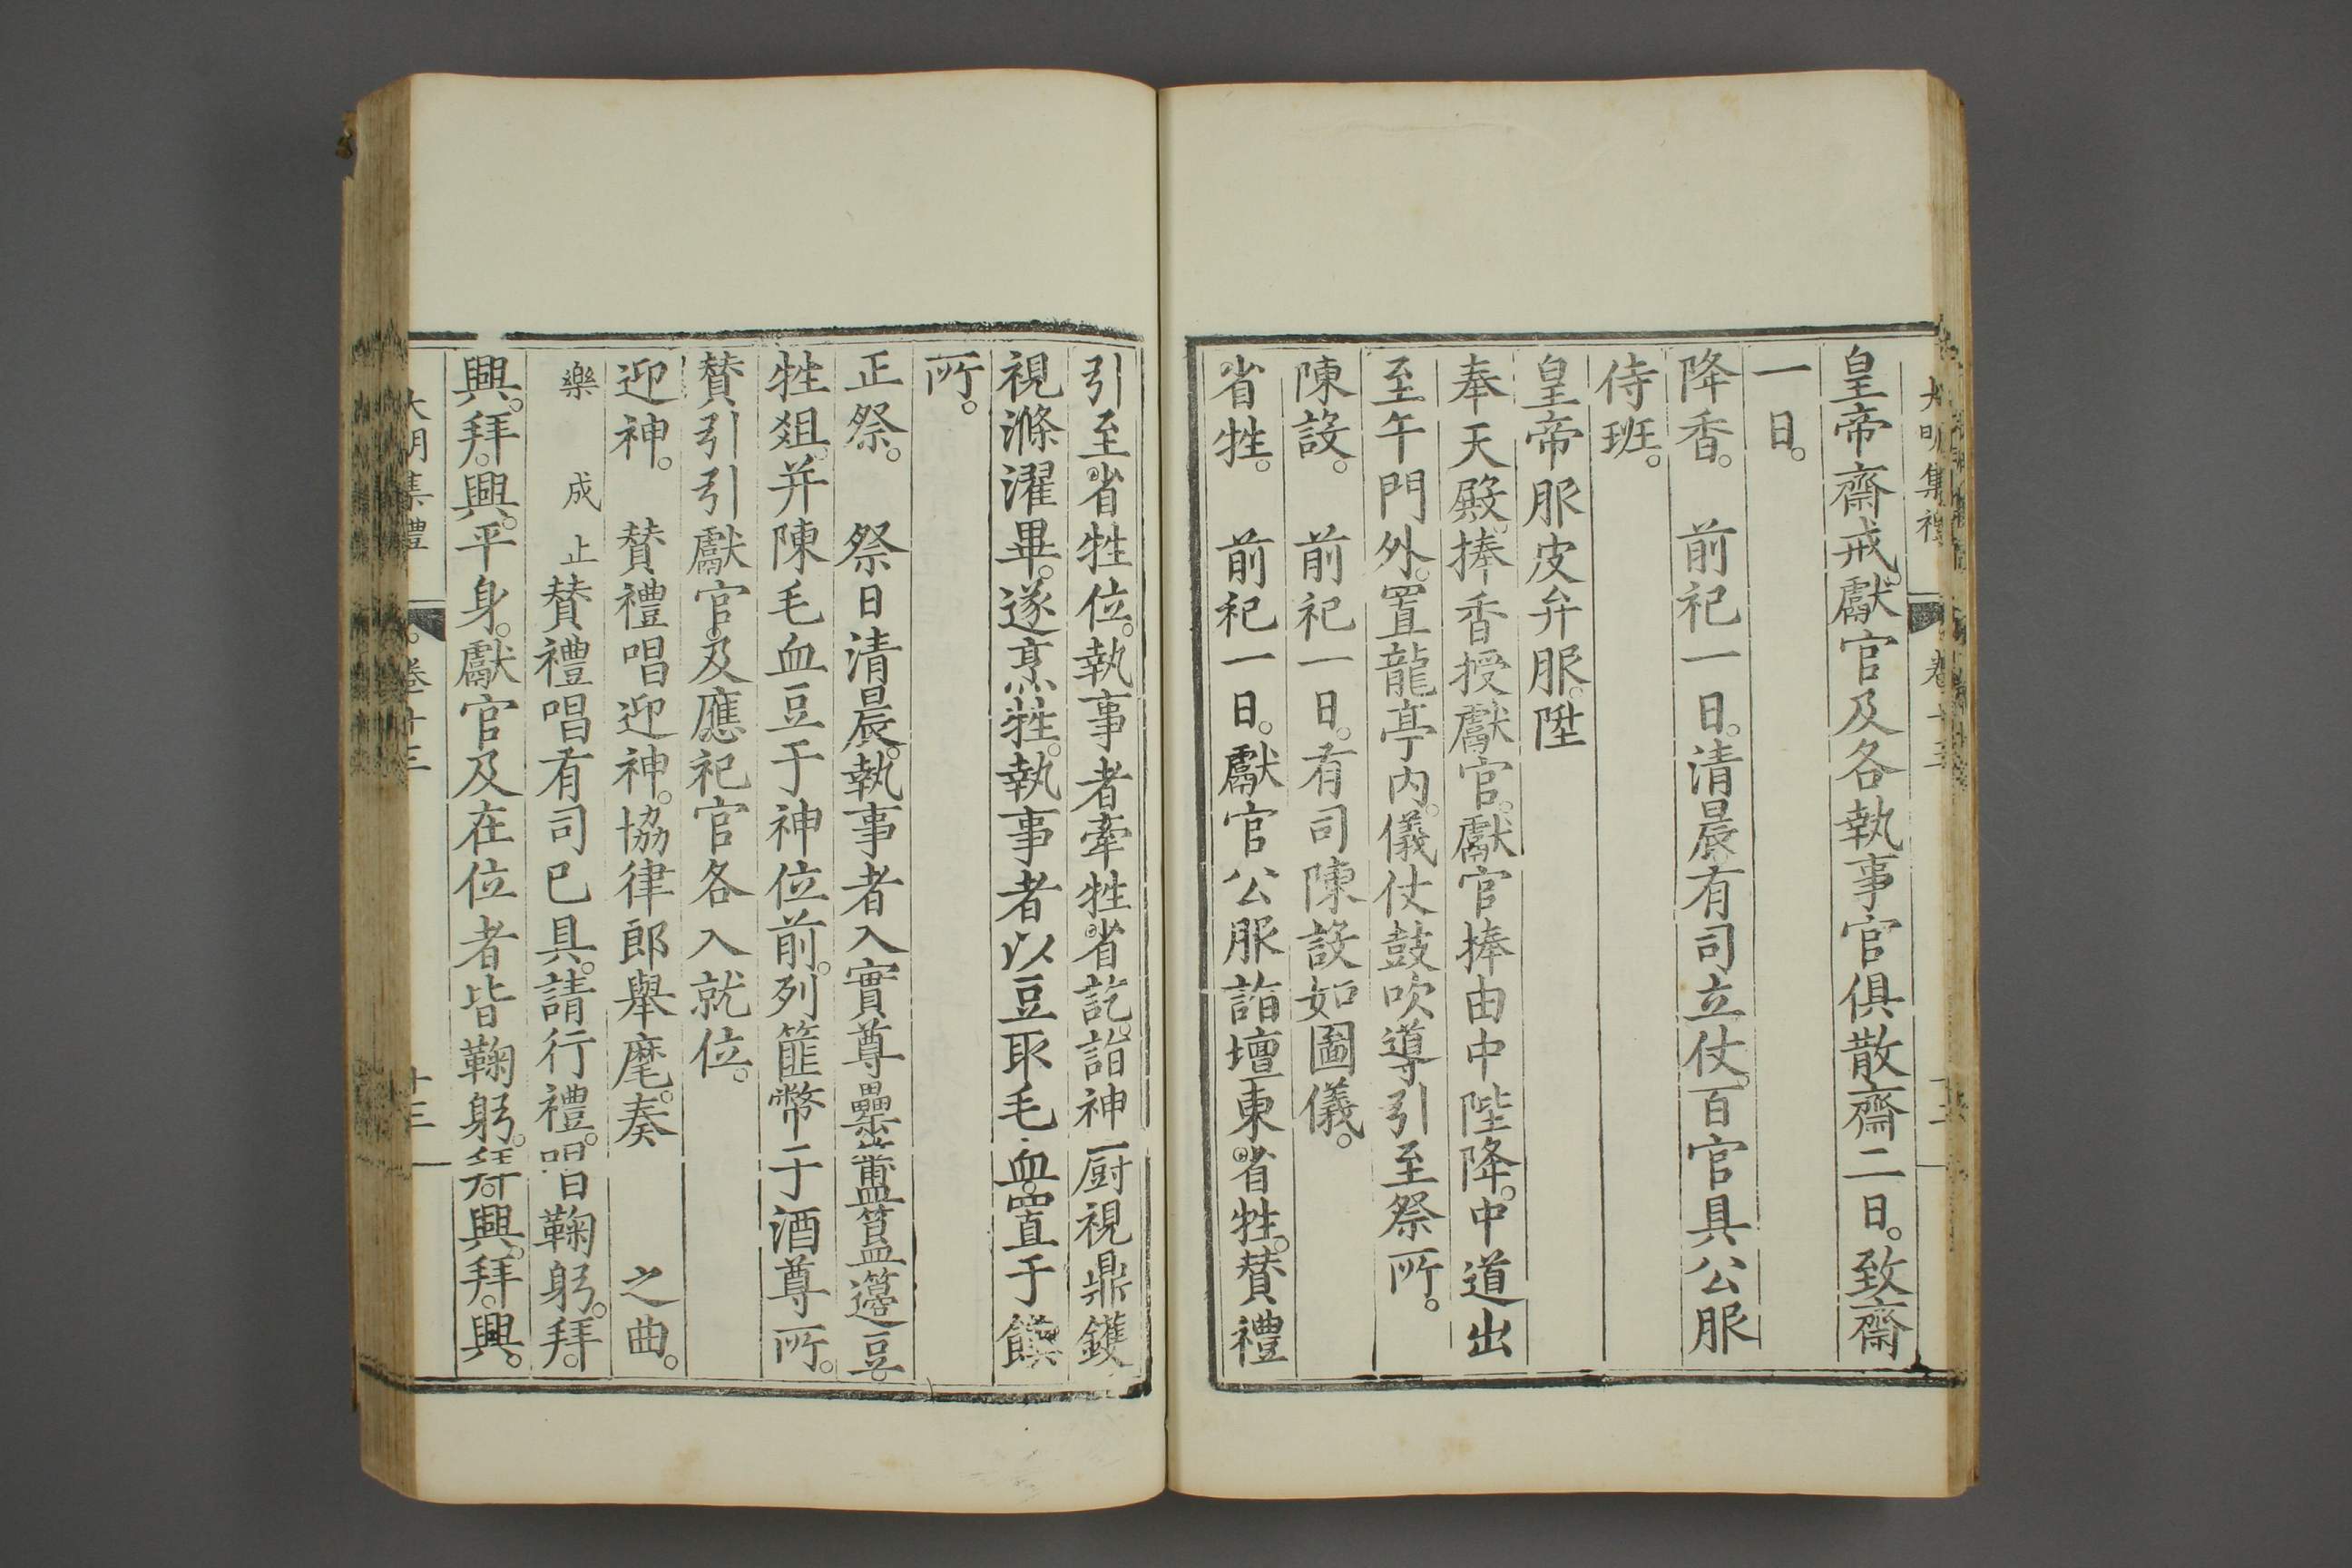 大明集禮 卷十三 十二
皇帝齋戒獻官及各執事官俱散齋二日。致齋
一日。
降香。 前祀一日。清晨有司立仗。百官具公服
侍班。
皇帝服皮弁服。陞
奉天殿。捧香授獻官。獻官捧由中陛降。中道出
至午門外。置龍亭內。儀仗鼓吹導引至祭所。
陳設。 前祀一日。有司陳設如圖儀。
省牲。 前祀一日。獻官公服詣壇東。省牲。贊禮
引至省牲位。執事者牽牲。省訖。詣神厨視鼎鑊
視滌濯畢。遂烹牲。執事者以豆取毛血。置于饌
所。
正祭。 祭日清晨。執事者入實尊罍簠簋籩豆。
牲俎。并陳毛血豆于神位前。列篚幣于酒尊所。
贊引引獻官。及應祀官各入就位。
迎神。 贊禮唱迎神。協律郎舉麾。奏 之曲。
樂 成 止贊禮唱有司已具。請行禮。唱鞠躬。拜。
興。拜。興。平身。獻官及在位者皆鞠躬。拜。興。拜。興。
大明集禮 卷十三 十三